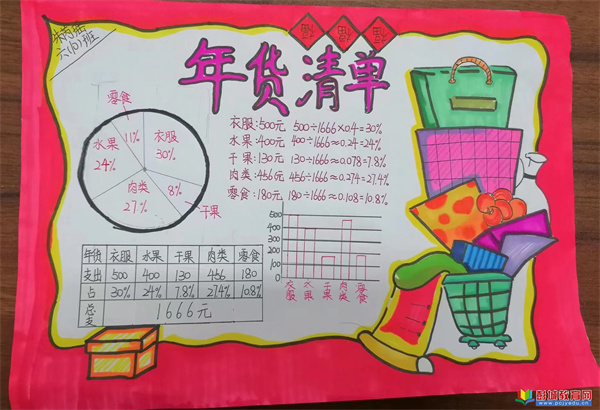 六(10)班
福 福 福
年货清单
零食
11%
水果
24%
衣服
30%
肉类
27.%
8%
干果
衣服:500元 500÷1666×0.4=30%
水果:400元 400÷1666≈0.24=24%
干果:130元 130÷1666≈0.078=7.8%
肉类:456元 456÷1666≈0.274=27.4%
零食:180元 180÷1666≈0.108=10.8%
500
400
300
200
100
0
衣服 水果 干果 肉类 零食
年货 衣服 水果 干果 肉类 零食
支出 500 400 130 456 180
占 30% 24% 7.8% 27.4% 10.8%
总支 1666元
彭城教育网
www.pcjyedu.cn